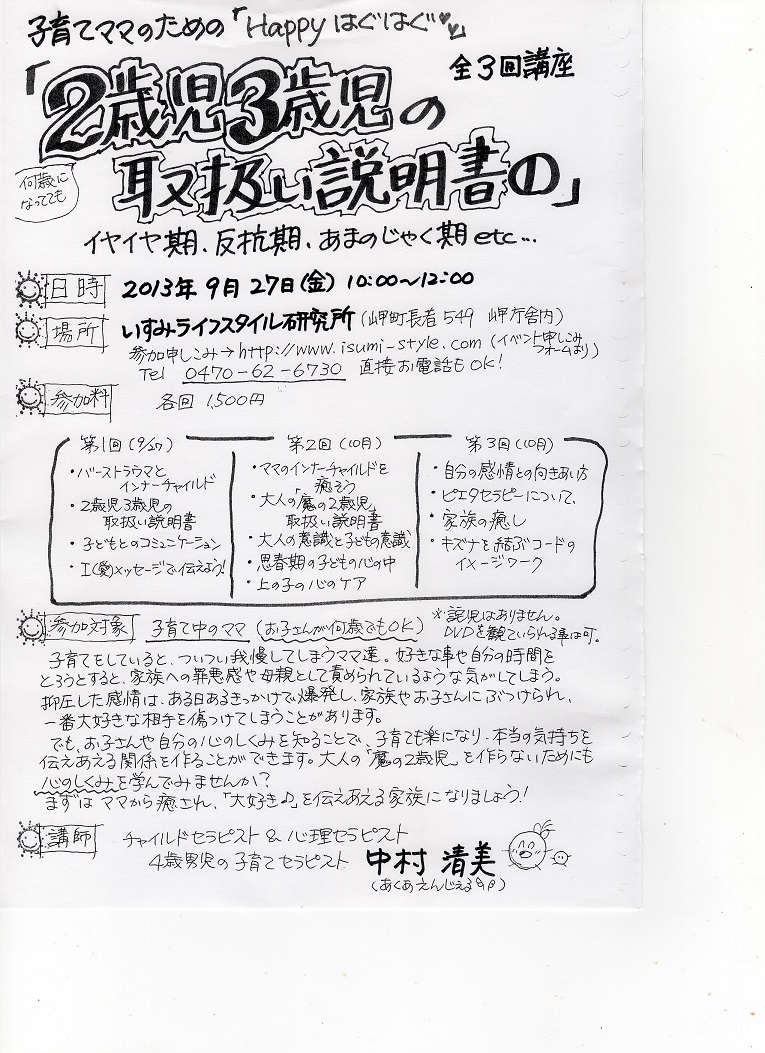 子育てママのための「Happy はぐはぐ♥♥」
全3回講座
「2歳児3歳児の
取扱い説明書の」
何歳に
なってても
イヤイヤ期、反抗期、あまのじゃく期 etc…
日時 2013年 9月 27日(金) 10:00〜12:00
場所 いすみライフスタイル研究所 (岬町長者549 岬庁舎内)
参加申しこみ→http://www.isumi-style.com (イベント申しこみ
フォームより)
Tel 0470-62-6730 直接お電話もOK!
参加料 各回 1,500円
第1回(9/27)
・バーストラウマと
インナーチャイルド
・2歳児3歳児の
取扱い説明書
・子どもとのコミュニケーション
・I(愛)メッセージで伝えよう!
第2回(10月)
・ママのインナーチャイルドを
癒そう
・大人の「魔の2歳児」
取扱い説明書
・大人の意識と子どもの意識
・思春期の子どもの心の中
・上の子の心のケア
第3回(10月)
・自分の感情との向きあい方
・ピエタセラピーについて、
・家族の癒し
・キズナを結ぶコードの
イメージワーク
参加対象 子育て中のママ (お子さんが何歳でもOK)
※託児はありません。
DVDを観ていられる事は可。
子育てをしていると、ついつい我慢してしまうママ達。好きな事や自分の時間を
とろうとすると、家族への罪悪感や母親として責められているような気がしてしまう。
抑圧した感情は、ある日あるきっかけで爆発し、家族やお子さんにぶつけられ、
一番大好きな相手を傷つけてしまうことがあります。
でも、お子さんや自分の心のしくみを知ることで、子育ても楽になり、本当の気持ちを
伝えあえる関係を作ることができます。大人の「魔の2歳児」を作らないためにも
心のしくみを学んでみませんか?
まずは ママから癒され、「大好き♪」を伝えあえる家族になりましょう!
講師 チャイルドセラピスト & 心理セラピスト
4歳男児の子育てセラピスト 中村 清美
(あくあえんじぇる)